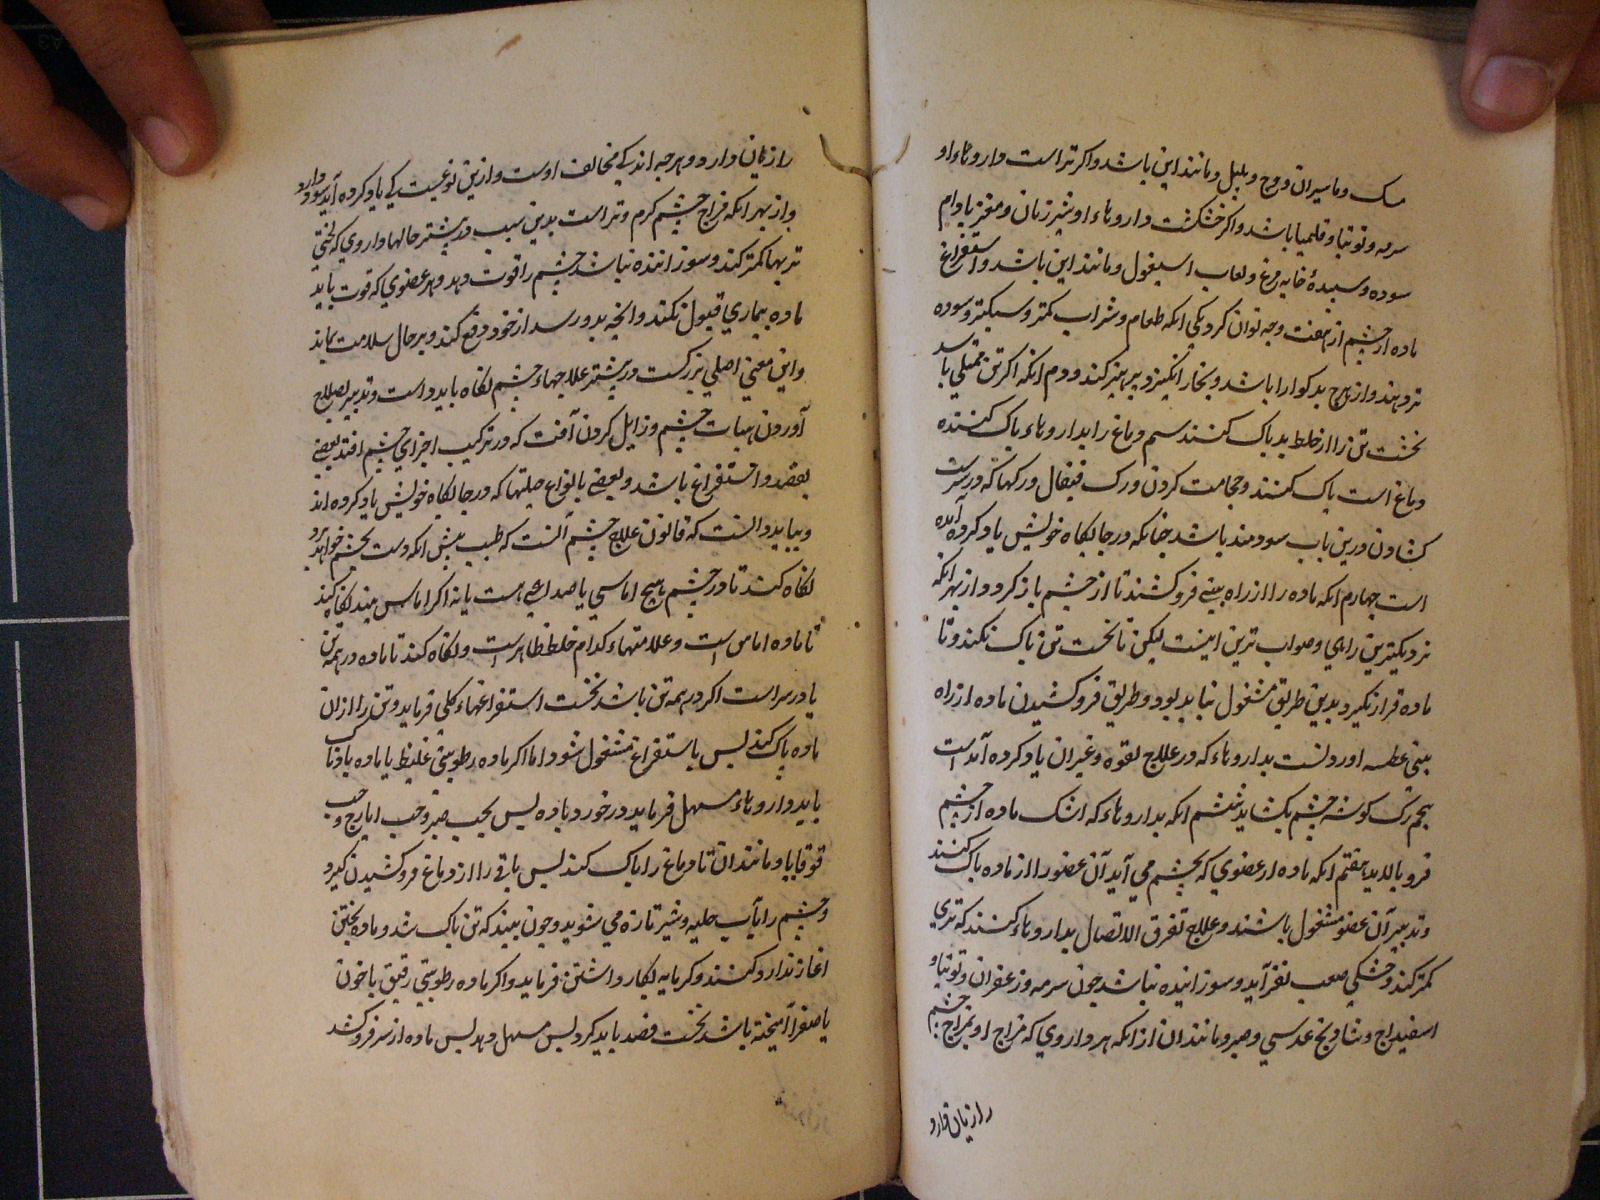 مسک و مامیران و وج و پلپل و مانند این باشد و اکر تر است داروهاء او
سرمه و توتیا و قلمیا باشد و اکر خشکست داروهاء او شیر زنان و مغز بادام
سوده و سبیدۀ خایه مرغ و لعاب اسپغول و مانند این باشد و استفراغ
ماده از چشم از هفت وجه توان کرد یکی انکه طعام و شراب کمتر و سبکتر و سوده
تر دهند و از هرچ بد کوارا باشد و بخار انکیزد پرهیز کنند دوم انکه اکر تن ممتلی باشد
نخست تن را از خلط بد پاک کنند سیم دماغ را بداروهاء پاک کننده
دماغ است پاک کنند و حجامت کردن و رک قیفال و رکها که در سر است
کشادن درین باب سودمند باشد چنانکه در جایکاه خویش یاد کرده آمده
است چهارم انکه ماده را از راه بینی فرو کشند تا از چشم باز کردد و از بهر انکه
نزدیکترین راهی و صواب ترین اینست لیکن تا نخست تن پاک نکند و تا
ماده قرار نکیرد بدین طریق مشغول نباید بود و طریق فرو کشیدن ماده از راه
بینی عطسه اوردنست بداروهاء که در علاج لقوه و غیر ان یاد کرده آمد است
پنجم رک کوشه چشم بکشاید ششم انکه بداروهاء که اشک ماده از چشم
فرو پالاید هفتم انکه ماده از عضوی که بچشم می آید آن عضو را از ماده پاک کنند
و تدبیر آن عضو مشغول باشند و علاج تفرق الاتصال بداروهاء کنند که تری
کمتر کند و خشکی صعب نفزاید و سوزاننده نباشد چون سرمه و زعفران و توتیا و
اسفیداج و شادنج عدسی و صبر و مانند ان از انکه هر داروی که مزاج او بمزاج چشم
را زیان دارد
را زیان دارد و هرچه اندکی مخالف اوست و ازین نوعیست کی یاد کرده آید سود دارد
و از بهر انکه مزاج چشم کرم و تر است بدین سبب در بیشتر حالها داروی که لختی
تریها کمتر کند و سوزاننده نباشد چشم را قوت دهد و هر عضوی که قوت یابد
ماده بیماری قبول نکند و انچه بدو رسد از خود دفع کند و بر حال سلامت بماند
و این معنی اصلی بزرکست در بیشتر علاجهاء چشم نکاه باید داشت و تدبیر بصلاح
آوردن هیات چشم و زایل کردن آفت که در ترکیب اجزای چشم افتد بعضی
بفصد و استفراغ باشد و بعضی بانواع حیلتها که در جایکاه خویش یاد کرده اند
و بباید دانست که قانون علاج چشم آنست که طبیب پیش انکه دست بچشم خواهد برد
نکاه کند تا در چشم هیچ اماسی یا صداعی هست یا نه اکر اماس بیند نکاه کند
تا ماده اماس است و علامتهاء کدام خلط ظاهر است و نکاه کند تا ماده در همه تن
یا در سر است اکر در همه تن باشد نخست استفراغهاء کلی فرماید و تن را از ان
ماده پاک کند پس باستفراغ مشغول شود اما اکر ماده رطوبتی غلیظ یا ماده بادناک
باید داروهاء مسهل فرماید در خورد ماده پس بحب صبر و حب ایارج و حب
قوقایا و مانند ان تا دماغ را پاک کند پس باقی را از دماغ فرو کشیدن کیرد
و چشم را بآب حلبه و شیر تازه می شوید و چون بیند که تن پاک شد و ماده پختن
اغاز ندارد کنند و کرمابه بکار داشتن فرماید و اکر ماده رطوبتی رقیق با خون
یا صفرا آمیخته باشد نخست فصد باید کرد پس مسهل دهد پس ماده از سر فرو کشد